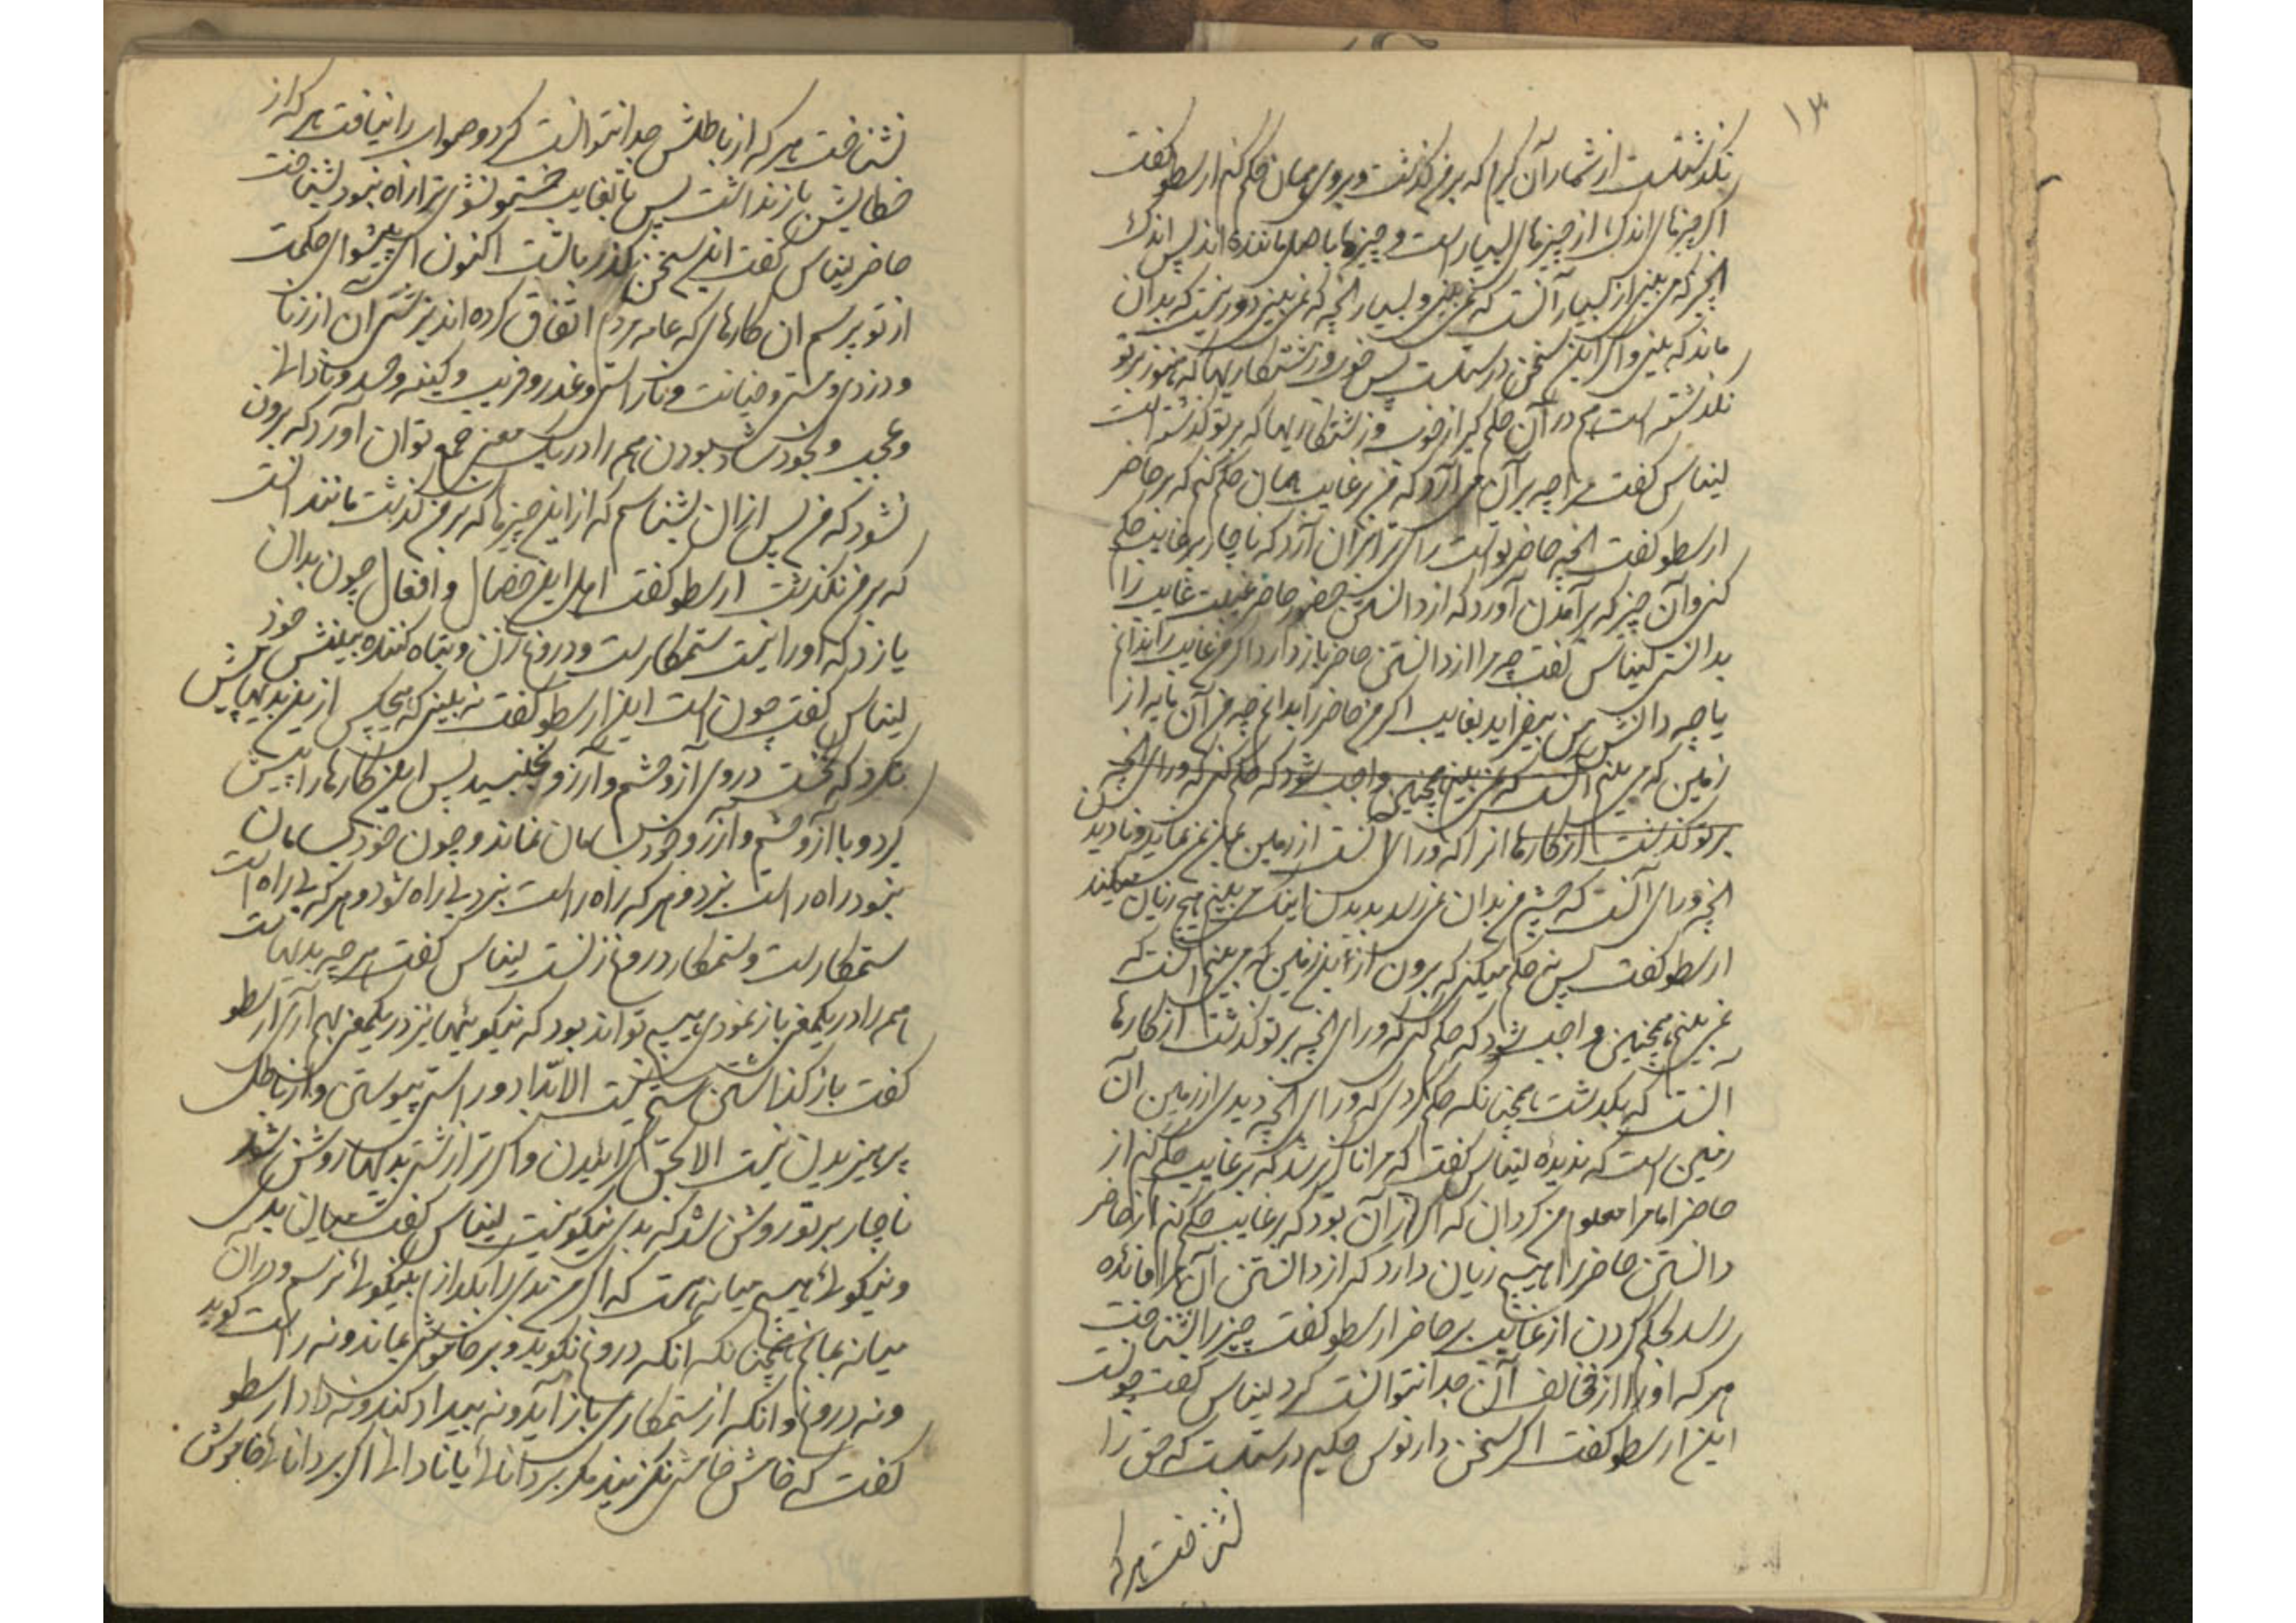 ۱۳
نگذشتست از شمار آن گیرم که بر من گذشت و بروی همان حکم کنم ارسطو گفت
اگر چیزهای اندک از چیزهای بسیارست و چیزها باصل ماننده اند پس اندک
آنچه که می بینی از بسیار آنست که نمی بینی و بسیار آنچه که نمی بینی دور نیست که بدان
ماند که بینی و اگر این سخن درستست پس خوب و زشتکاریها که هنوز بر تو
نگذشته است هم در آن حکم گیر از خوب و زشتکاریها که بر تو گذشته است
لیناس گفت مرا چه بر آن می آرد که من بر غایب همان حکم کنم که بر حاضر
ارسطو گفت آنچه حاضر تو است رای ترا بران آرد که ناچار بر غایب حکم
کنی و آن چیز که بر آمدن آورد که از دانستن حضور حاضر غیبت غایب را
بدانستی لیناس گفت چه مرا از دانستن حاضر باز دارد اگر من غایب را ندانم
یا چه دانش بمن بیفزاید بغایب اگر من حاضر را بدانم چه من آن پایه از
زمین که می بینم آنست که نمی بینم همچنین واجب شود که حکم کنی که ورای آنچه
بر تو گذشت از کارها از آنکه ورای آنست از زمین بمن نمی نماید و نادیدن
آنچه ورای آنست که چشم من بدان نمیرسد بدیدن اینکه می بینم هیچ زیان نمیکند
ارسطو گفت پس نه حکم میکنی که برون از این زمین که می بینم آنست که
نمی بینم همچنین واجب شود که حکم کنی که ورای آنچه بر تو گذشت از کارها
آنست که نگذشت همچنانکه حکم کردی که ورای آنچه دیدی از زمین آن
زمین است که ندیدهٔ لیناس گفت که مرا ناگزیر شد که بر غایب حکم کنم از
حاضر اما مرا معلوم من گردان که اگر نه از آن بود که بر غایب حکم کنم از حاضر
دانستن حاضر را هیچ زیان دارد که از دانستن آن مرا فائده
رسد بحکم کردن از غایب بر حاضر ارسطو گفت چیز را نشناخت
هر که او را از مخالف آن جدا نتوانست کرد لیناس گفت چونست
این ارسطو گفت اگر سخن دارنوس حکیم درستست که حق را
نشناخت هر که
نشناخت هر که از باطلش جدا نتوانست کرد و صواب را نیافت هر که از
خطایش باز ندانست پس تا بغایب خستو نشوی ترا راه نبود بشناخت
حاضر لیناس گفت این سخن گذر یافت اکنون ای پیشوای حکمت
از تو پرسم ان کارهای که عامه مردم اتفاق کرده اند بر زشتی ان از زنا
و دزدی و مستی و خیانت و ناراستی و غدر و فریب و کینه و حسد و نادانی
و عجب و بخود شاد بودن همه را در یک معنی جمع توان آورد که برون
نشود که من پس از ان بشناسم که از این چیزها که بر من گذشت مانند آنست
که بر من نگذشت ارسطو گفت اهل این خصال و افعال چون بدان
یازد که او را نیست ستمکارست و دروغ زن و تباه کننده بینش خود
لیناس گفت چون است این ارسطو گفت نه بینی که هیچکس از این بدیها پیش
نکرد که نخست در وی آز و خشم و آرزو بجنبید پس این کارها را پیش
کرد و با آز و خشم و آرزو خود بسامان نماند و چون خود بسامان
نبود راه راست نبرد و هر که راه راست نبرد بی راه شود و هر که بی راه است
ستمکارست و ستمکار دروغ زنست لیناس گفت هر چه بدیها است
همه را در یکمعنی باز نمودی هیچ تواند بود که نیکوئیها نیز در یکمعنی بهم آری ارسطو
گفت باز گذاشتن ستم نیست الا بداد و راستی پیوستن و از باطل
پرهیزیدن نیست الا بحق گرائیدن و اگر ترا زشتی بدیها روشن شد
ناچار بر تو روشن شد که بدی نیکو نیست لیناس گفت میان بدی
و نیکوئی هیچ میانه هست که اگر من بدی را بگذارم بنیکوئی نرسم و در آن
میانه بمانم همچنانکه آنکه دروغ نگوید و بر خاموشی بماند و نه راست گوید
و نه دروغ و آنکه از ستمکاری باز آید و نه بیداد کند و نه داد ارسطو
گفت که خامش خامشی نگزیند مگر بر دانائی یا نادانی اگر بر دانائی خاموش